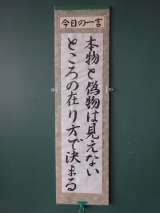 今日の一言
本物と偽物は見えない
ところの在り方で決まる